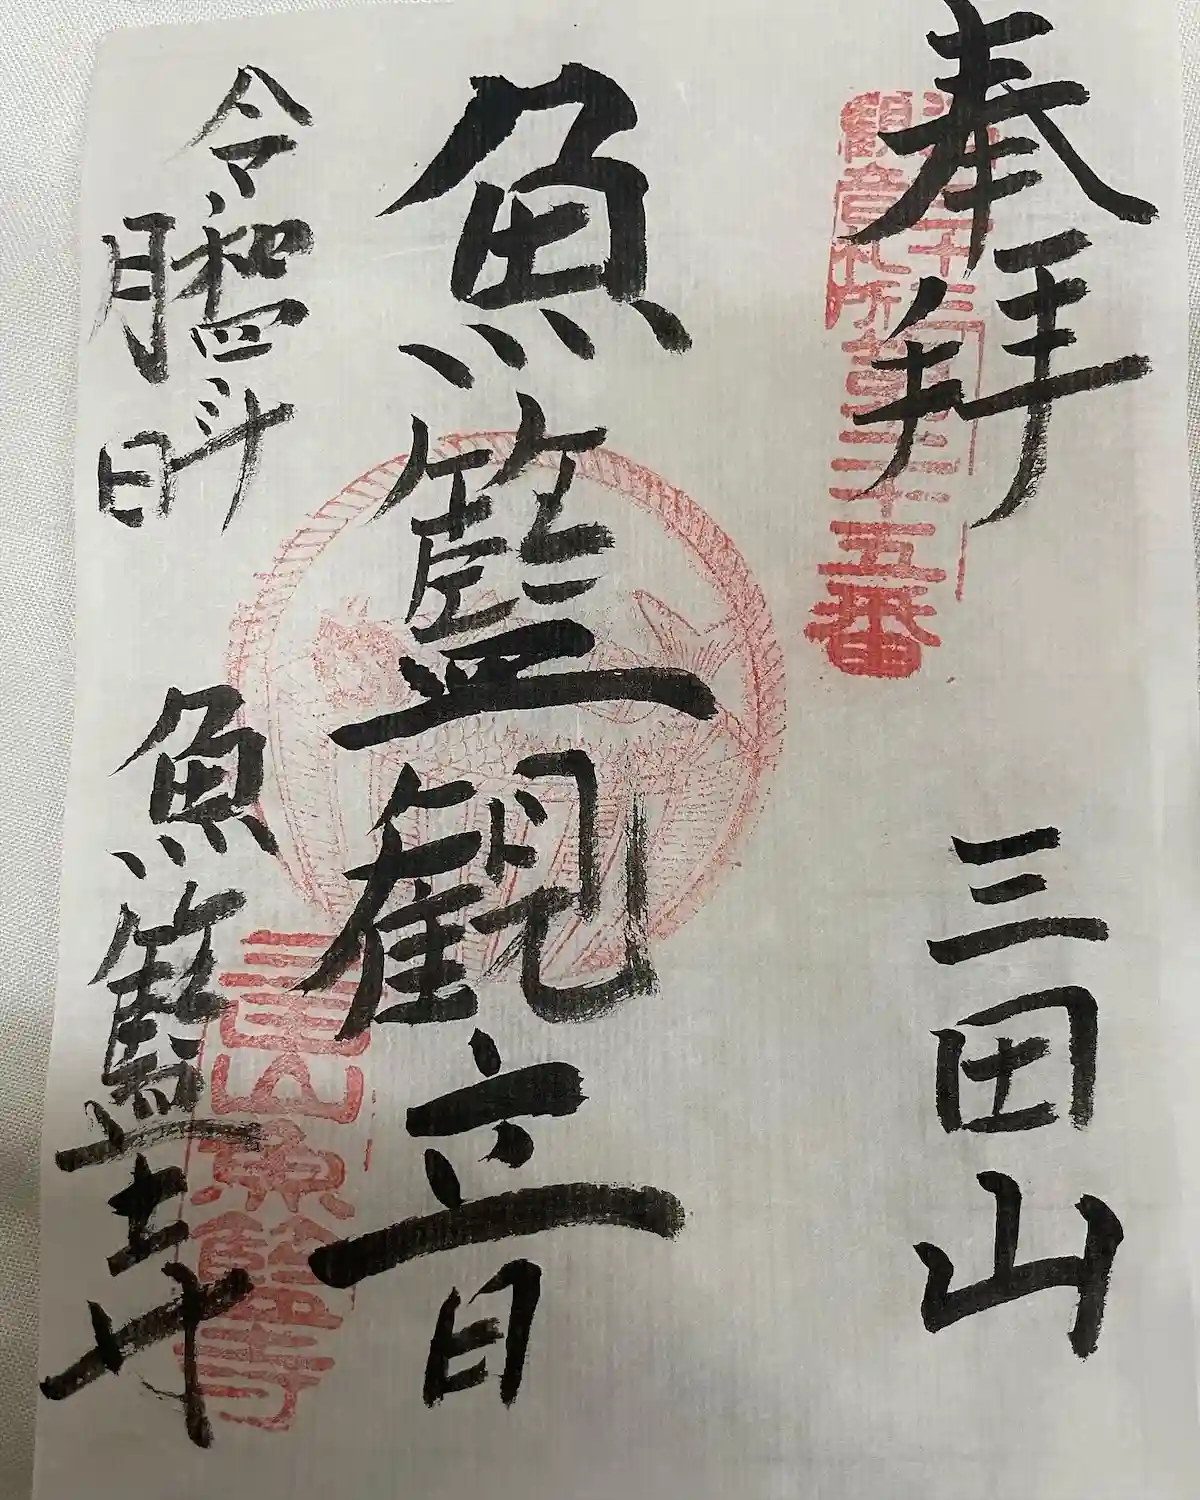 奉拝 三田山
江戸三十三
観音札所第二十五番
魚籃観音
令和四年
月 日
魚籃寺
三田山魚籃寺